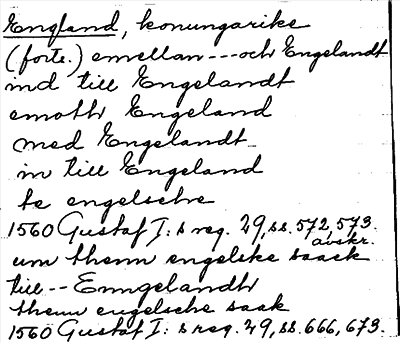 England, konungarike
(forts.) emellan --- och Engelandt
ind till Engelandt
emoth Engeland
med Engelandt
in till Engeland
te engelsche
1560 Gustaf I:s reg. 29, ss. 572, 573.
avskr.
um thenn engelske saack
till -- Enngelandh
thenn engelsche saak
1560 Gustaf I:s reg. 29, ss. 666, 673.